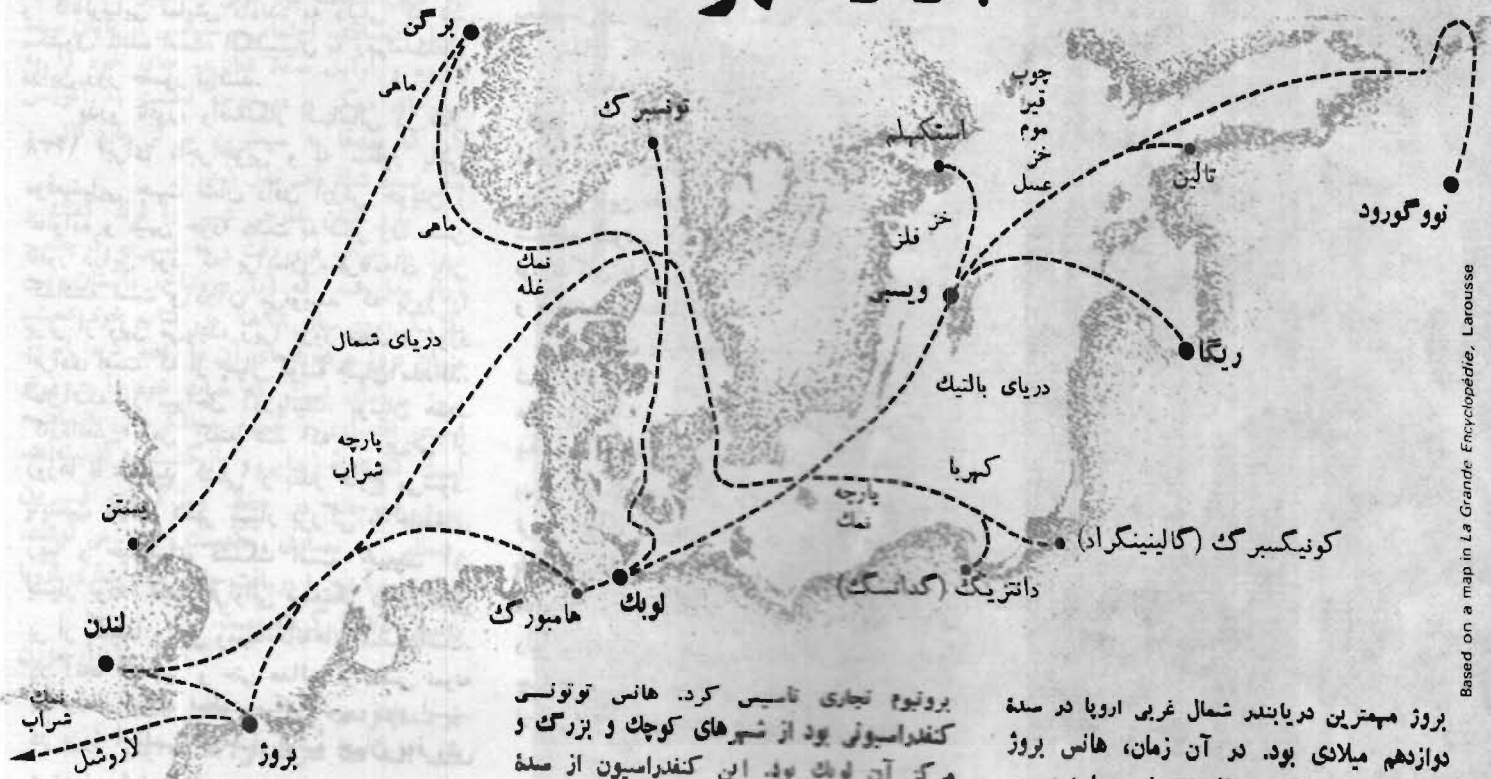 برگن
ماهی
تونسبرگ
استکهلم
چوب
قیر
موم
خز
عسل
تالین
نووگورود
ماهی
نمك
غله
خز
فلز
ویسبی
ریگا
دریای شمال
دریای بالتیك
پارچه
شراب
کهربا
پارچه
نمك
بستن
کونیکسبرگ (گالینینگراد)
دانتزیگ (گدانسگ)
هامبورگ
لوبك
لندن
نمك
شراب
لاروشل
بروژ
Based on a map in La Grande Encyclopédie, Larousse
بروژ مهمترین دریابندر شمال غربی اروپا در سدهٔ
دوازدهم میلادی بود. در آن زمان، هانس بروژ
برونیوم تجاری تاسیس کرد. هانس توتونسی
کنفدراسیونی بود از شهرهای کوچك و بزرگ و
مرکز آن لوبك بود. این کنفدراسیون از سدهٔ